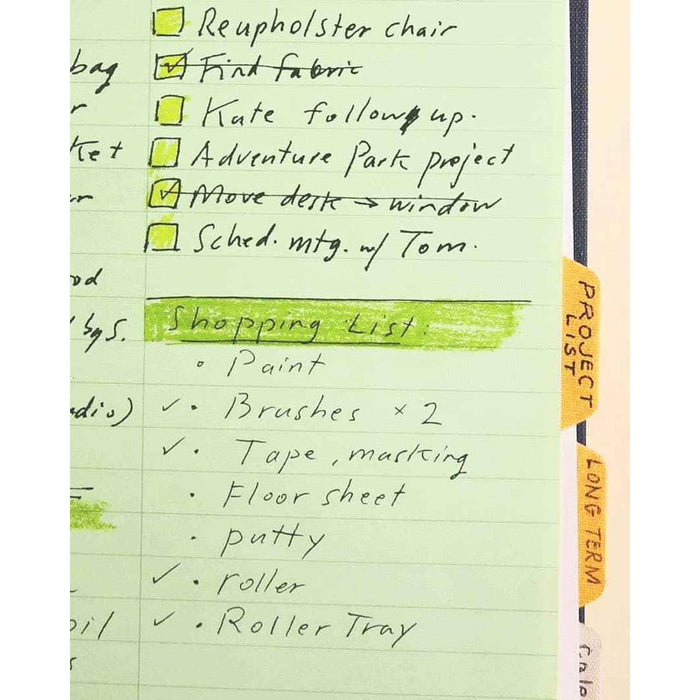 Reupholster chair
Find fabric
Kate follow up.
Adventure Park project
Move desk → window
Sched. mtg. w/ Tom.
Shopping List:
• Paint
✓ • Brushes × 2
✓ • Tape, masking
• Floor sheet
• putty
✓ • roller
✓ • Roller Tray
bag
PROJECT
LIST
LONG TERM